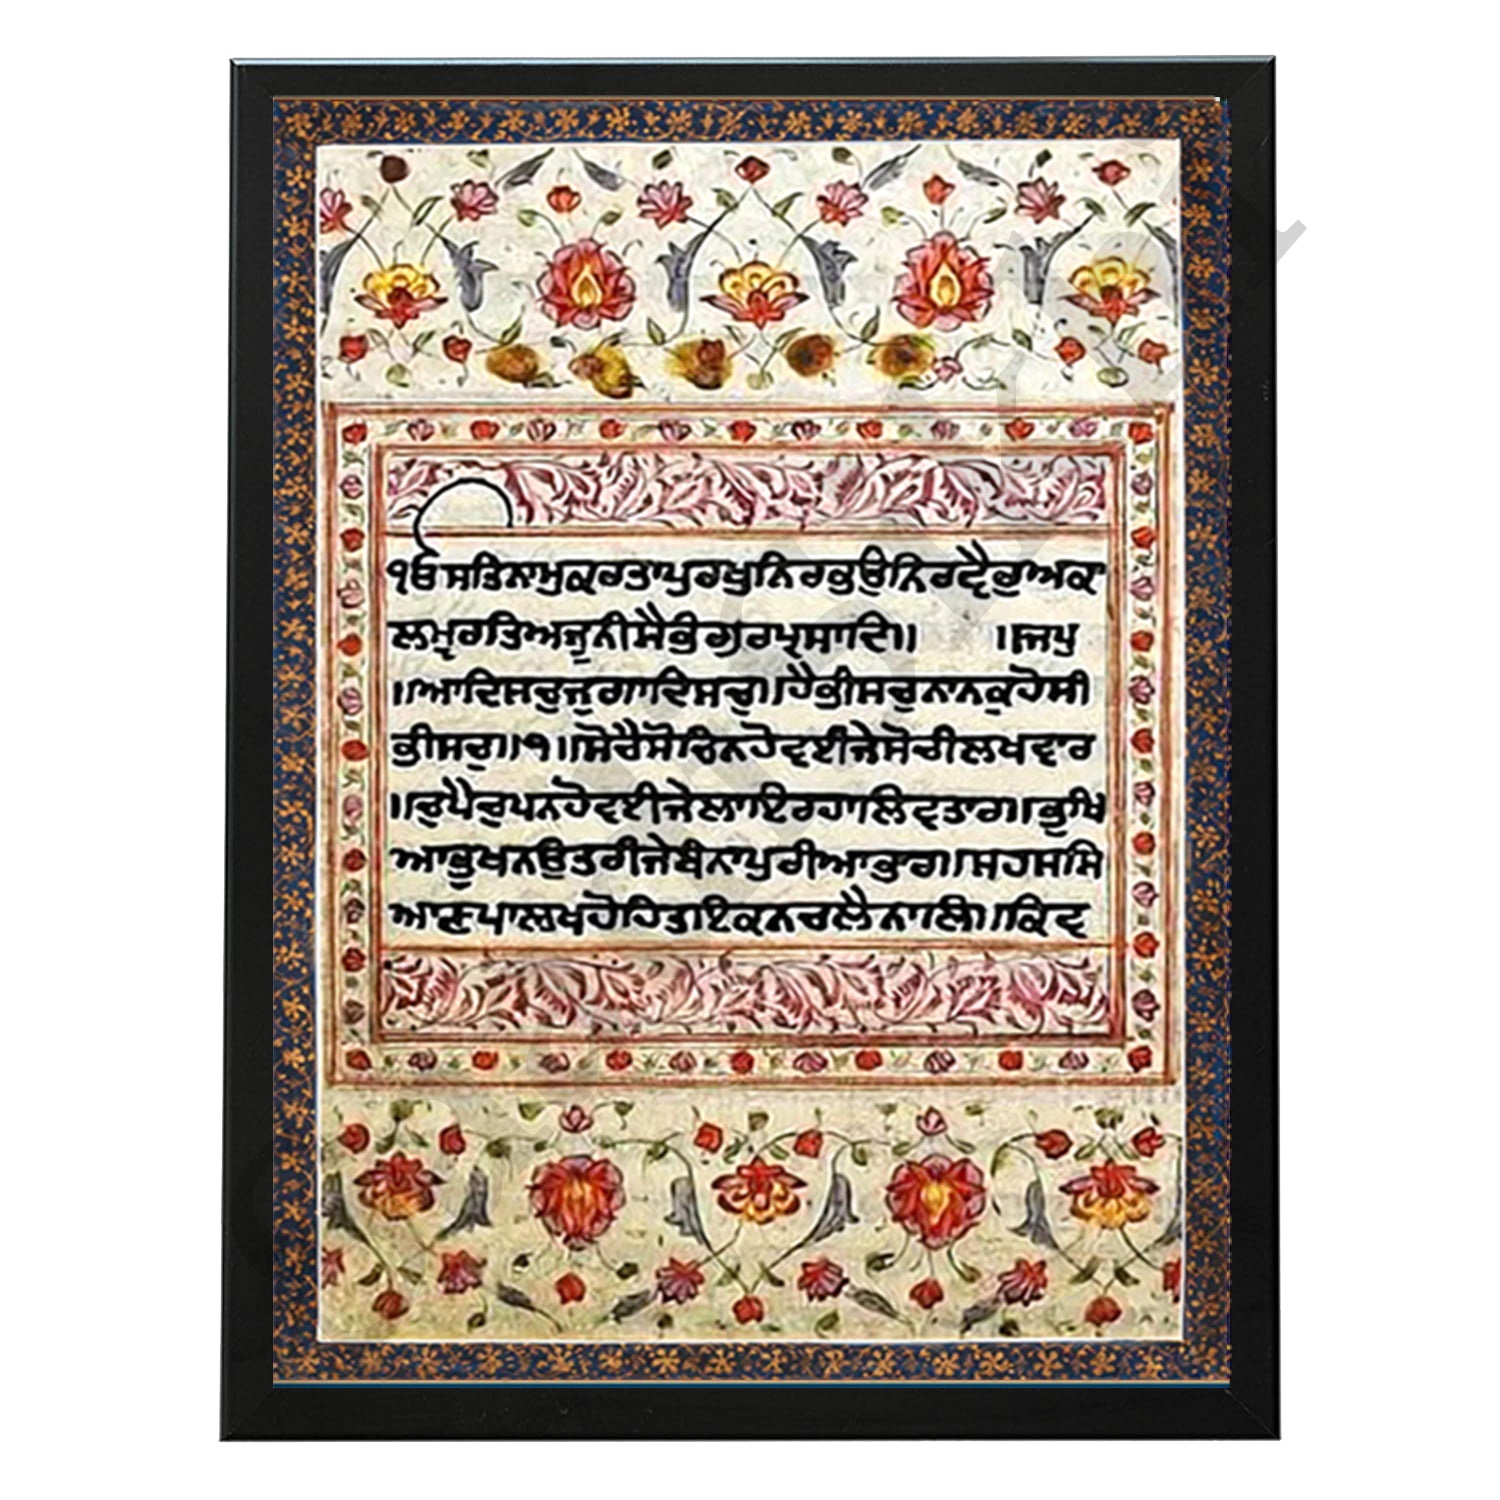 ੴਸਤਿਨਾਮੁਕਰਤਾਪੁਰਖੁਨਿਰਭਉਨਿਰਵੈਰੁਅਕਾ
ਲਮੂਰਤਿਅਜੂਨੀਸੈਭੰਗੁਰਪ੍ਰਸਾਦਿ॥ ॥ਜਪੁ
॥ਆਦਿਸਚੁਜੁਗਾਦਿਸਚੁ॥ਹੈਭੀਸਚੁਨਾਨਕਹੋਸੀ
ਭੀਸਚੁ॥੧॥ਸੋਚੈਸੋਚਿਨਹੋਵਈਜੇਸੋਚੀਲਖਵਾਰ
॥ਚੁਪੈਚੁਪਨਹੋਵਈਜੇਲਾਇਰਹਾਲਿਵਤਾਰ॥ਭੁਖਿ
ਆਭੁਖਨਉਤਰੀਜੇਬੰਨਾਪੁਰੀਆਭਾਰ॥ਸਹਸਸਿ
ਆਣਪਾਲਖਹੋਹਿਤਾਇਕਨਚਲੈਨਾਲਿ॥ਕਿਵ